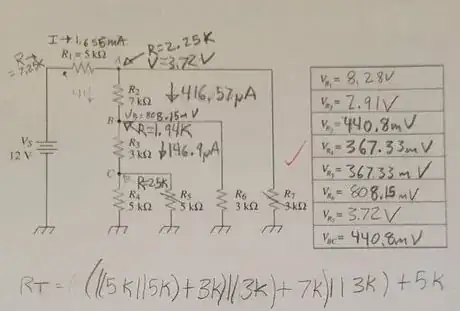 I → 1.655mA
R→ = 7.25K
R₁ = 5 kΩ
A
R=2.25K
V=3.72V
R₂
7 kΩ
↓ 416.57µA
B
V_B= 808.15mV
R=1.94K
Vs
12 V
R₃
3 kΩ
↓ 146.9µA
C
R=2.5K
R₄
5 kΩ
R₅
5 kΩ
R₆
3 kΩ
R₇
3 kΩ
V_R₁ = 8.28V
V_R₂ = 2.91V
V_R₃ = 440.8mV
V_R₄ = 367.33mV
V_R₅ = 367.33mV
V_R₆ = 808.15mV
V_R₇ = 3.72V
V_BC = 440.8mV
RT = ((((5K||5K)+3K)||3K)+7K)||3K)+5K